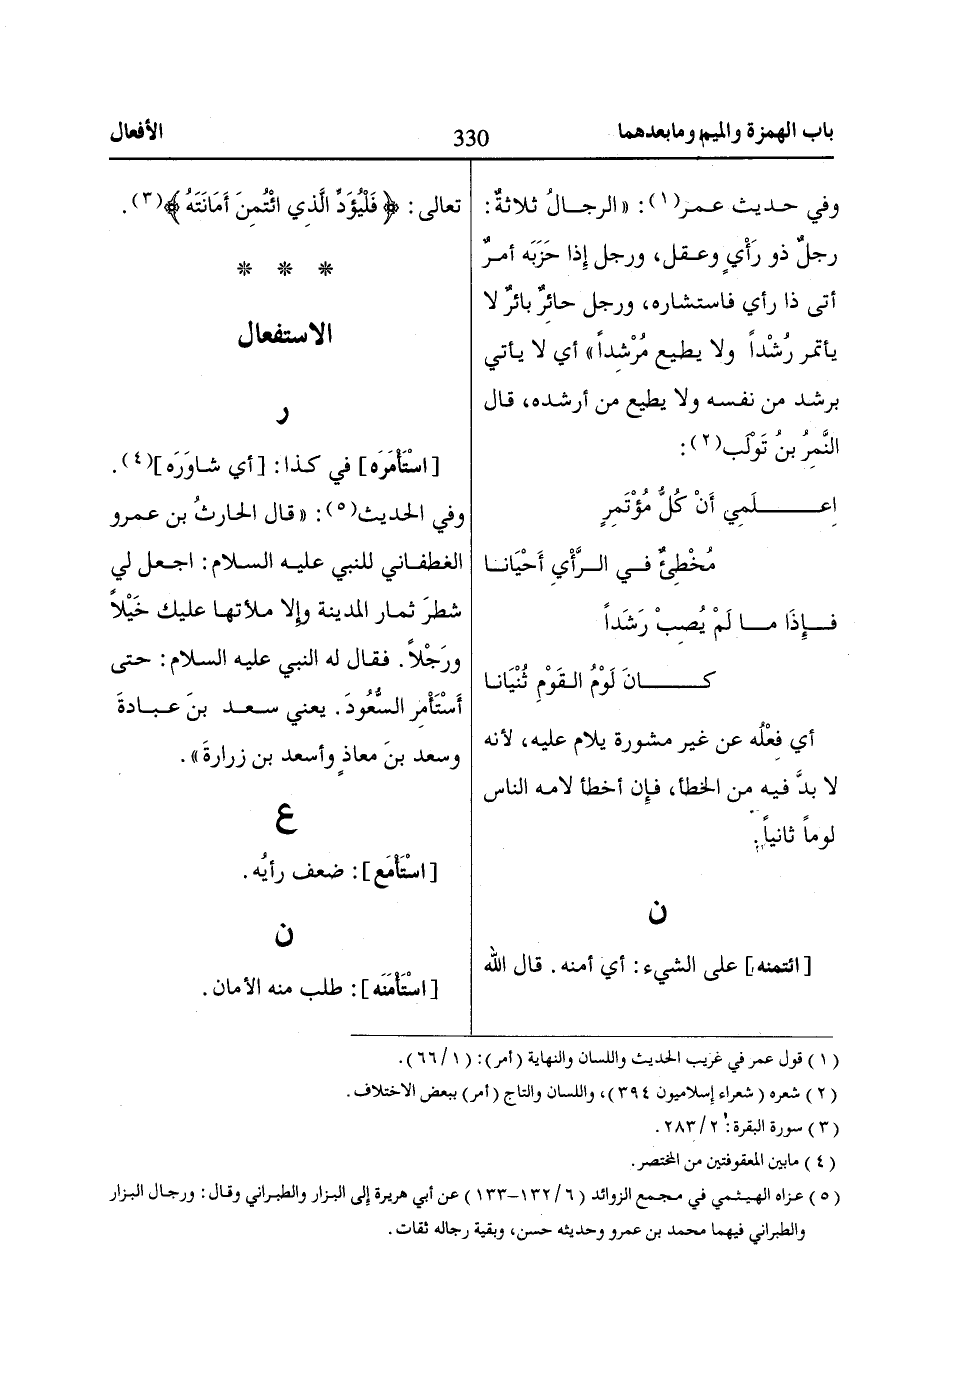 باب الهمزة والميم ومابعدهما
330
الأفعال
وفي حديث عمر(١): «الرجالُ ثلاثةٌ:
رجلٌ ذو رَأْيٍ وعقل، ورجل إذا حَزَبَه أمرٌ
أتى ذا رأي فاستشاره، ورجل حائرٌ بائرٌ لا
يأتمر رُشْداً ولا يطيع مُرْشِداً» أي لا يأتي
برشد من نفسه ولا يطيع من أرشده، قال
النَّمِرُ بنُ تَوْلَب(٢):
اِعـــلَمِي أَنْ كُلُّ مُؤْتَمِرٍ
مُخْطِئٌ فـي الـرَّأْيِ أَحْيَانـا
فـإِذَا مـا لَمْ يُصِبْ رَشَداً
كـــانَ لَوْمُ القَوْمِ ثُنْيَانـا
أي فِعْلُه عن غير مشورة يلام عليه، لأنه
لا بدَّ فيه من الخطأ، فإن أخطأ لامه الناس
لوماً ثانياً.
ن
[ائتمنه] على الشيء: أي أمنه. قال الله
تعالى: ﴿فَلْيُؤَدِّ الَّذِي ائْتُمِنَ أَمَانَتَهُ﴾(٣).
* * *
الاستفعال
ر
[اسْتَأْمَرَه] في كذا: [أي شاوَرَه](٤).
وفي الحديث(٥): «قال الحارثُ بن عمرو
الغطفاني للنبي عليه السلام: اجعل لي
شطرَ ثمار المدينة وإلا ملأتها عليك خَيْلاً
ورَجْلاً. فقال له النبي عليه السلام: حتى
أَسْتَأْمِر السُّعُودَ. يعني سعد بنَ عبادةَ
وسعد بنَ معاذٍ وأسعد بن زرارةَ».
ع
[اسْتَأْمَع]: ضعف رأيُه.
ن
[اسْتَأْمَنَه]: طلب منه الأمان.
(١) قول عمر في غريب الحديث واللسان والنهاية (أمر): (١/٦٦).
(٢) شعره (شعراء إسلاميون ٣٩٤)، واللسان والتاج (أمر) ببعض الاختلاف.
(٣) سورة البقرة: ٢/٢٨٣.
(٤) مابين المعقوفتين من المختصر.
(٥) عزاه الهيثمي في مجمع الزوائد (٦/١٣٢-١٣٣) عن أبي هريرة إلى البزار والطبراني وقال: ورجال البزار
والطبراني فيهما محمد بن عمرو وحديثه حسن، وبقية رجاله ثقات.